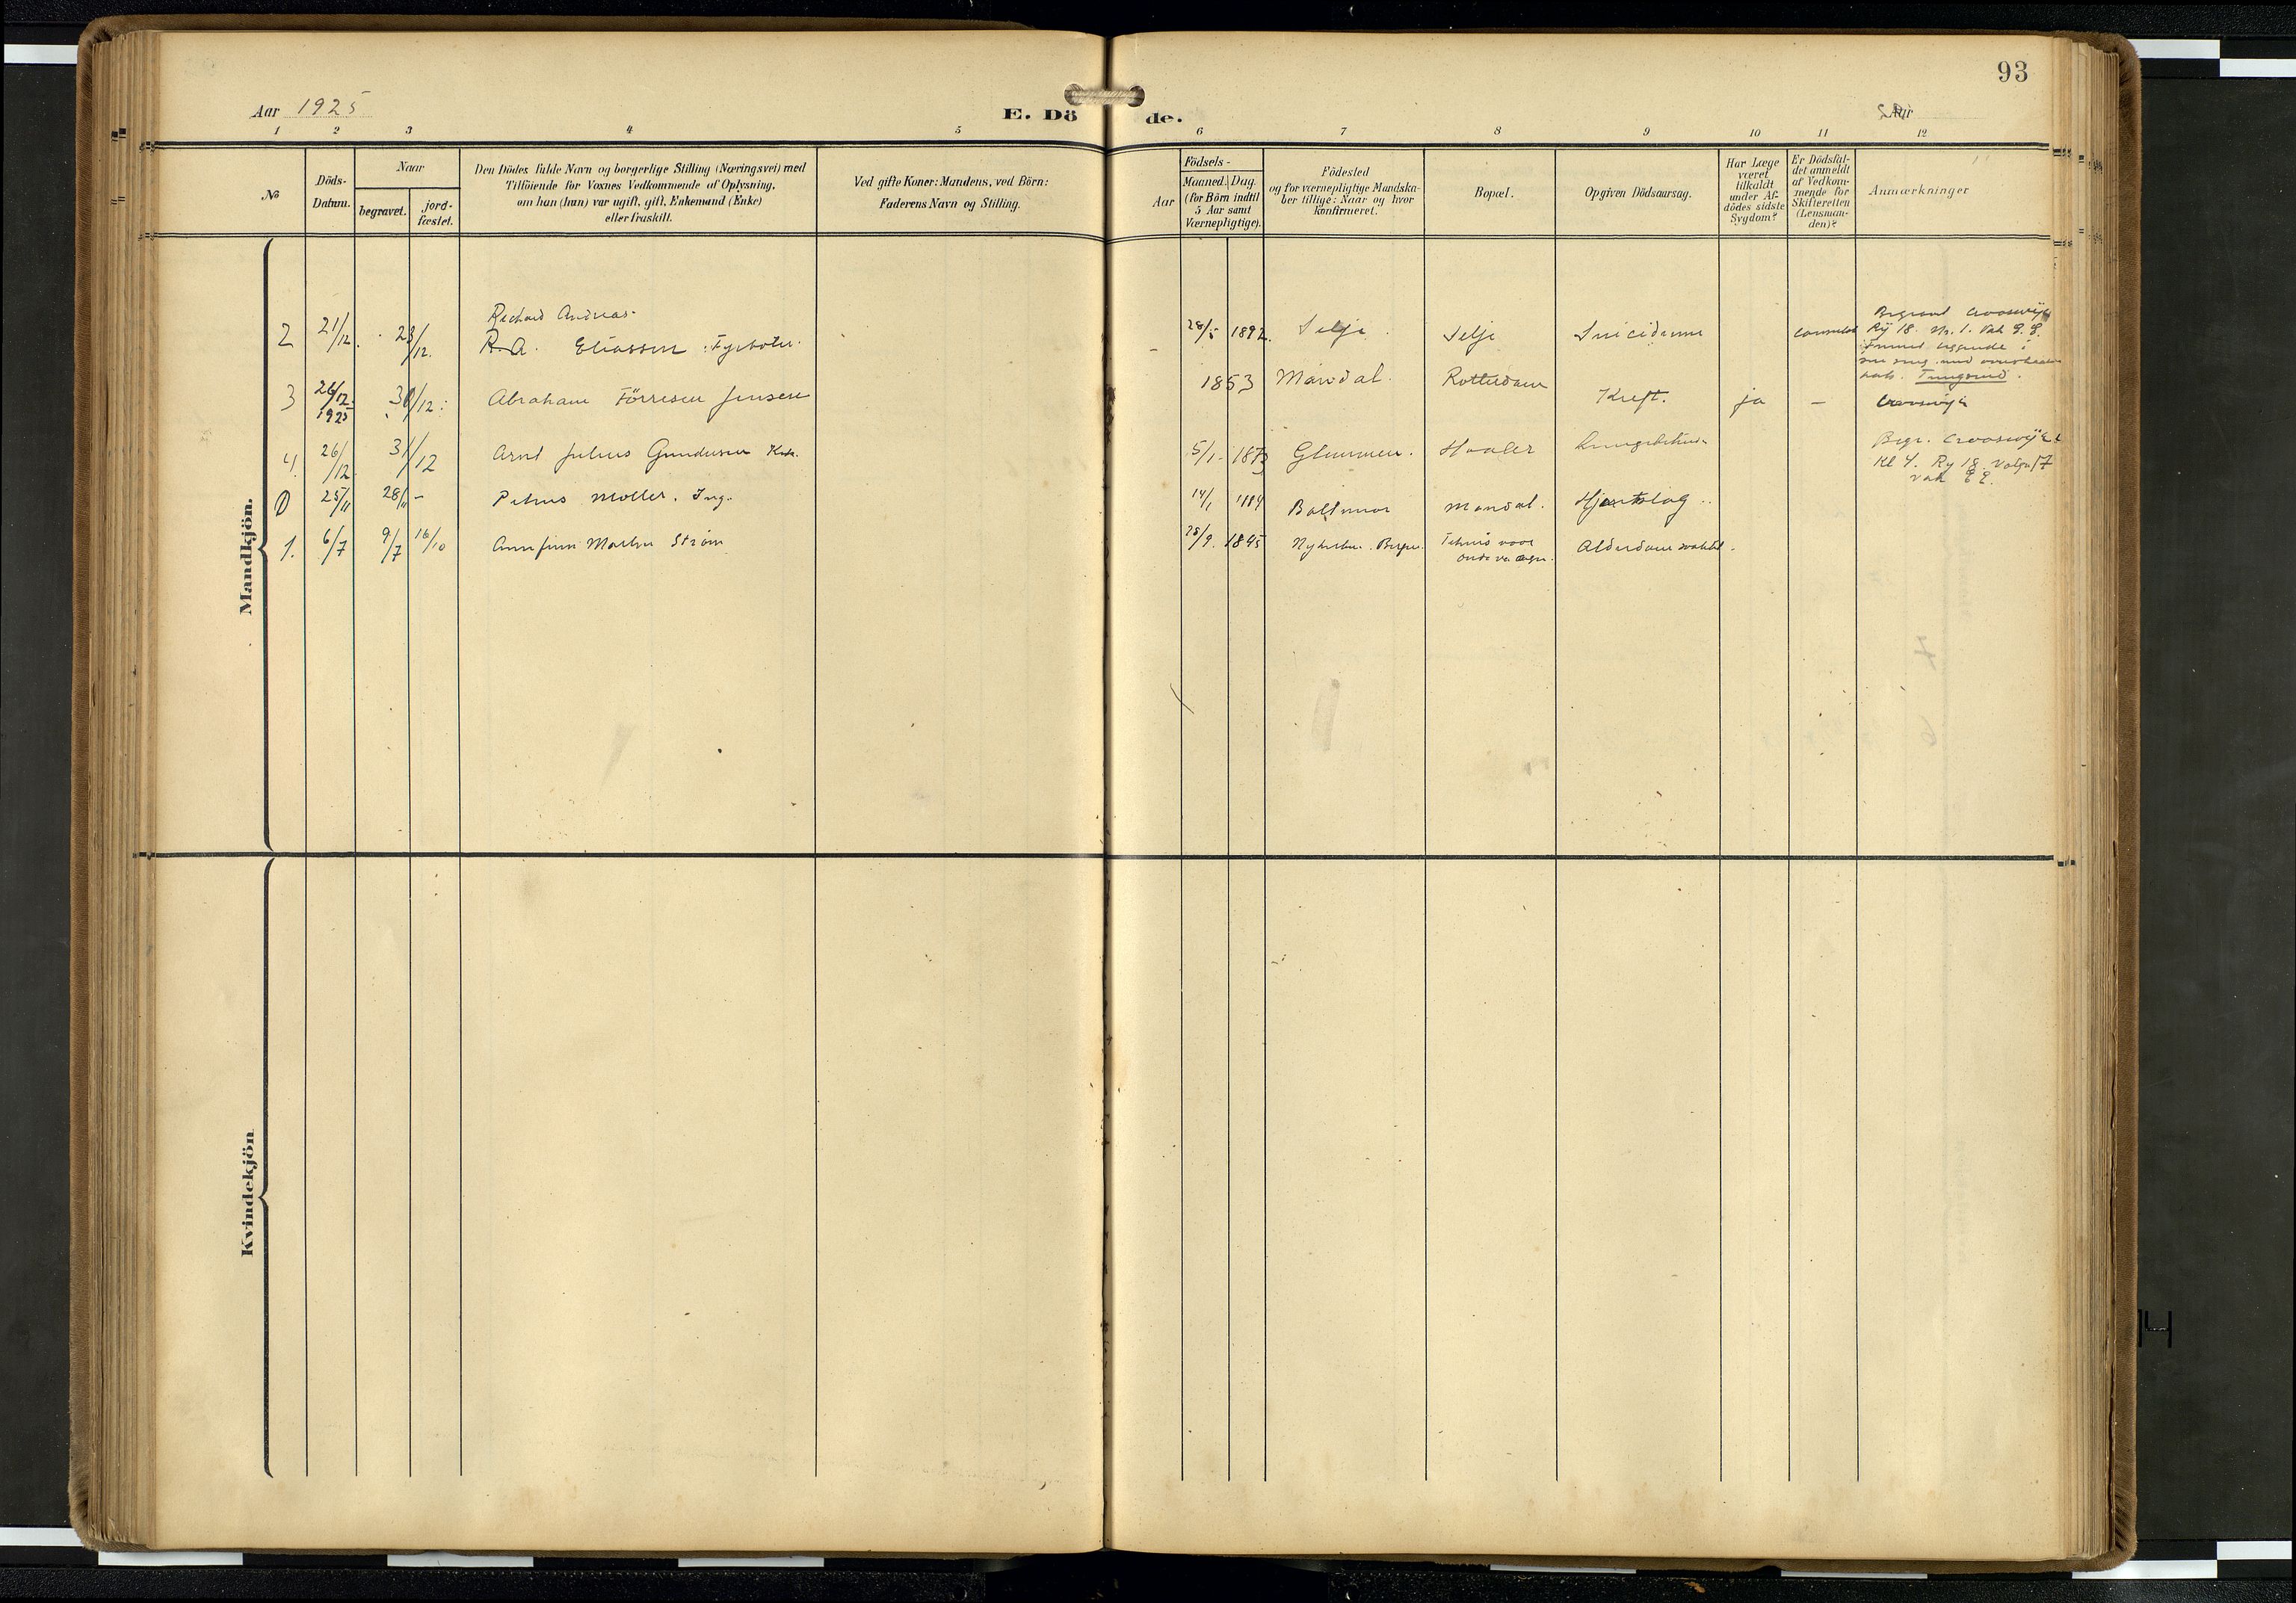 93
Aar 1925
E. Dö de.
Aar
1 2 3 4 5 6 7 8 9 10 11 12
No
Döds-
Datum.
Naar
begravet.
jord-
fæstet.
Den Dödes fulde Navn og borgerlige Stilling (Næringsvei) med
Tilföiende for Voxnes Vedkommende af Oplysning,
om han (hun) var ugift, gift, Enkemand (Enke)
eller fraskilt.
Ved gifte Koner: Mandens, ved Börn:
Faderens Navn og Stilling.
Födsels-
Aar
Maaned. Dag.
(for Börn indtil
5 Aar samt
Værnepligtige).
Födested
og for værnepligtige Mandska-
ber tillige: Naar og hvor
konfirmeret.
Bopæl.
Opgiven Dödsaarsag.
Har Læge
været
tilkaldt
under Af-
dödes sidste
Sygdom?
Er Dödsfal-
det anmeldt
af Vedkom-
mende for
Skifteretten
(Lensman-
den)?
Anmærkninger
Mandkjön.
Richard Andreas
2 21/12 23/12. R. A. Eliassen. Fyrböter. 28/5 1892. Selje. Selje Suicidium
Begravet Crooswijk
Rij 18. Nr. 1. Vak
Funnet liggende i
3 26/12 1925 30/12: Abraham Förresen Jensen 1853 Mandal. Rotterdam Kreft. ja — Crooswijk
4. 26/12 31/12 Arnt Julius Gundersen 5/1- 1873 Glemmen. Hvaler
Begr. Crooswijk
Kl 4. Rij 18. Volgn 17
vak
0 25/11 28/11 - Petrus Møller. Ing. 14/1 Mandal. Hjerteslag
1. 6/7 9/7 16/10 Annfinn Martin Strøm 25/9. 1845 Tehuis voor
ouden van dagen. Alderdomssvakhet.
Kvindekjön